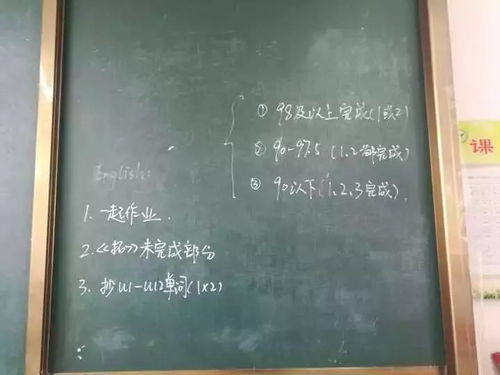 ① 98及以上完成(1或2)
② 90-97.5 (1、2都完成)
③ 90以下(1、2、3完成).
English:
1. 一起作业.
2.《拓》未完成部分
3. 抄U1-U12单词(1×2)
课